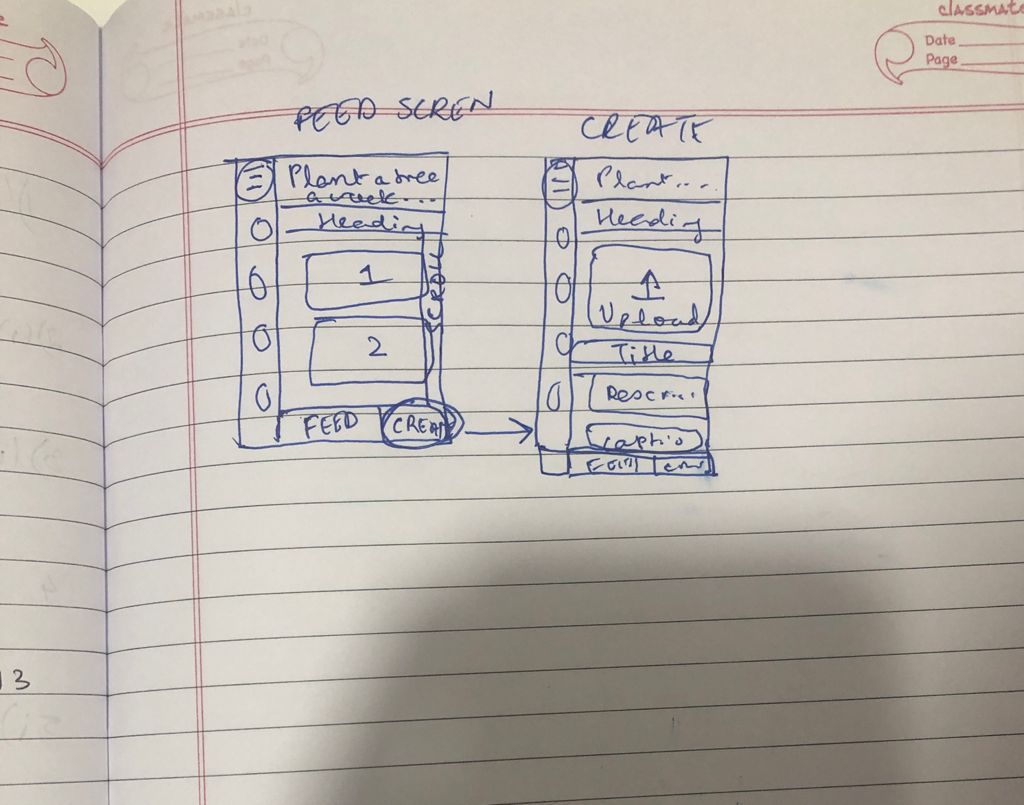 classmate
Date
Page
FEED SCREN
CREATE
Plant a tree
a week...
Heading
1
2
SCROLL
FEED
CREATE
Plant....
Heading
Upload
Title
Descr...
Captio
13